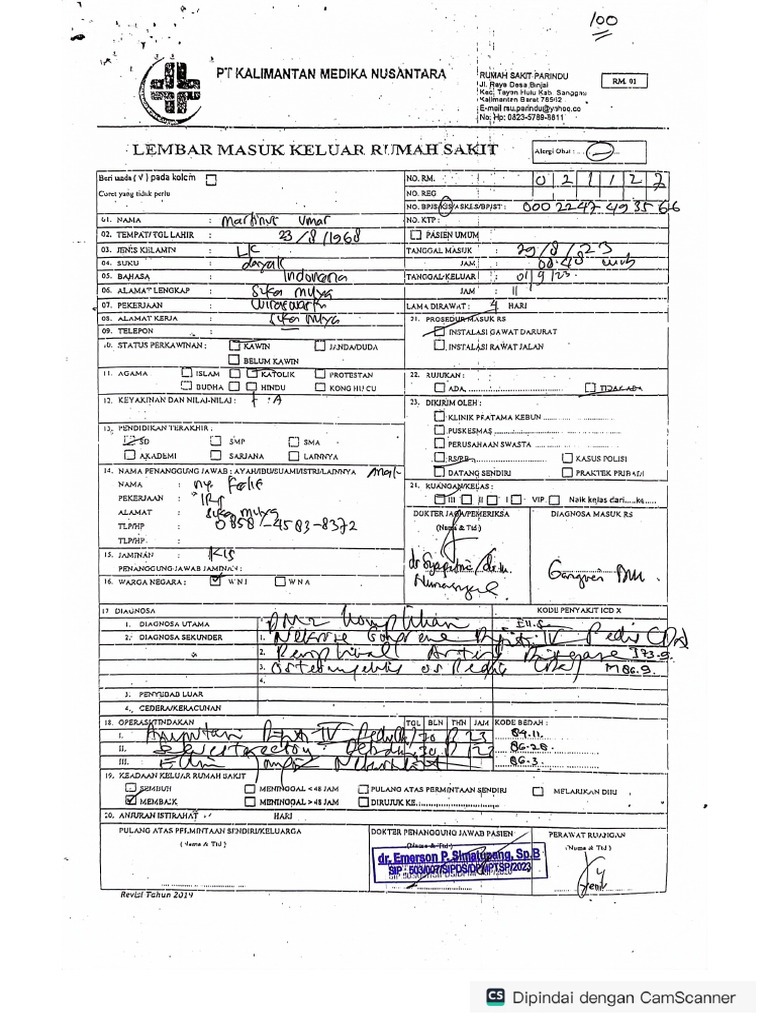 100
PT KALIMANTAN MEDIKA NUSANTARA
RUMAH SAKIT PARINDU
Jl. Raya Desa Binjai
Kec. Tayan Hulu Kab. Sanggau
Kalimantan Barat 78562
E-mail rsu.parindu@yahoo.co
No. Hp: 0823-5789-8811
RM. 01
LEMBAR MASUK KELUAR RUMAH SAKIT
Alergi Obat :
Beri tanda ( √ ) pada kolom
Coret yang tidak perlu
NO. RM. 0 2 1 1 2 2
NO. REG
NO. BPJS/KIS/ASKES/BPJST : 0002247493566
01. NAMA : Martinus Umar
NO. KTP :
02. TEMPAT/TGL LAHIR : 23/8/1968
PASIEN UMUM
03. JENIS KELAMIN : LK
TANGGAL MASUK : 29/8/23
04. SUKU : dayak
JAM : 08.48 wib
05. BAHASA : Indonesia
TANGGAL KELUAR : 01/9/23.
06. ALAMAT LENGKAP : Suka mulya
JAM : 11
07. PEKERJAAN : wiraswasta
LAMA DIRAWAT : 4 HARI
08. ALAMAT KERJA : Suka mulya
09. TELEPON :
21. PROSEDUR MASUK RS
INSTALASI GAWAT DARURAT
INSTALASI RAWAT JALAN
10. STATUS PERKAWINAN : KAWIN JANDA/DUDA
BELUM KAWIN
11. AGAMA ISLAM KATOLIK PROTESTAN
BUDHA HINDU KONG HU CU
22. RUJUKAN :
ADA TIDAK ADA
12. KEYAKINAN DAN NILAI-NILAI :
23. DIKIRIM OLEH :
KLINIK PRATAMA KEBUN
PUSKESMAS
PERUSAHAAN SWASTA
RS/RB KASUS POLISI
DATANG SENDIRI PRAKTEK PRIBADI
13. PENDIDIKAN TERAKHIR :
SD SMP SMA
AKADEMI SARJANA LAINNYA
14. NAMA PENANGGUNG JAWAB : AYAH/IBU/SUAMI/ISTRI/LAINNYA
NAMA : ny
PEKERJAAN : IRT
ALAMAT : Suka mulya
TLP/HP : 0858-4583-8372
TLP/HP :
24. RUANGAN/KELAS :
III II I VIP Naik kelas dari.....ke.....
DOKTER JAGA/PEMERIKSA
(Nama & Ttd)
DIAGNOSA MASUK RS
Gangren DM.
15. JAMINAN : KIS
PENANGGUNG JAWAB JAMINAN :
16. WARGA NEGARA : WNI WNA
17 DIAGNOSA
KODE PENYAKIT ICD X
1. DIAGNOSA UTAMA DM2
2. DIAGNOSA SEKUNDER 1. IV Pedis
2. Arteri I73.9.
3. Osteomyelitis os Pedis M86.9.
4.
3. PENYEBAB LUAR
4. CEDERA/KERACUNAN
18. OPERASI/TINDAKAN TGL BLN THN JAM KODE BEDAH :
I. Amputasi IV 30 8 23 84.11.
II. 30 8 23 86.28.
III. 86.3.
19. KEADAAN KELUAR RUMAH SAKIT
SEMBUH MENINGGAL < 48 JAM PULANG ATAS PERMINTAAN SENDIRI MELARIKAN DIRI
MEMBAIK MENINGGAL > 48 JAM DIRUJUK KE
20. ANJURAN ISTIRAHAT HARI
PULANG ATAS PERMINTAAN SENDIRI/KELUARGA
( Nama & Ttd )
DOKTER PENANGGUNG JAWAB PASIEN
(Nama & Ttd )
dr. Emerson P. Simatupang, Sp.B
SIP : 503/007/SIPDS/DPMPTSP/2023
PERAWAT RUANGAN
(Nama & Ttd )
Revisi Tahun 2019
CS Dipindai dengan CamScanner